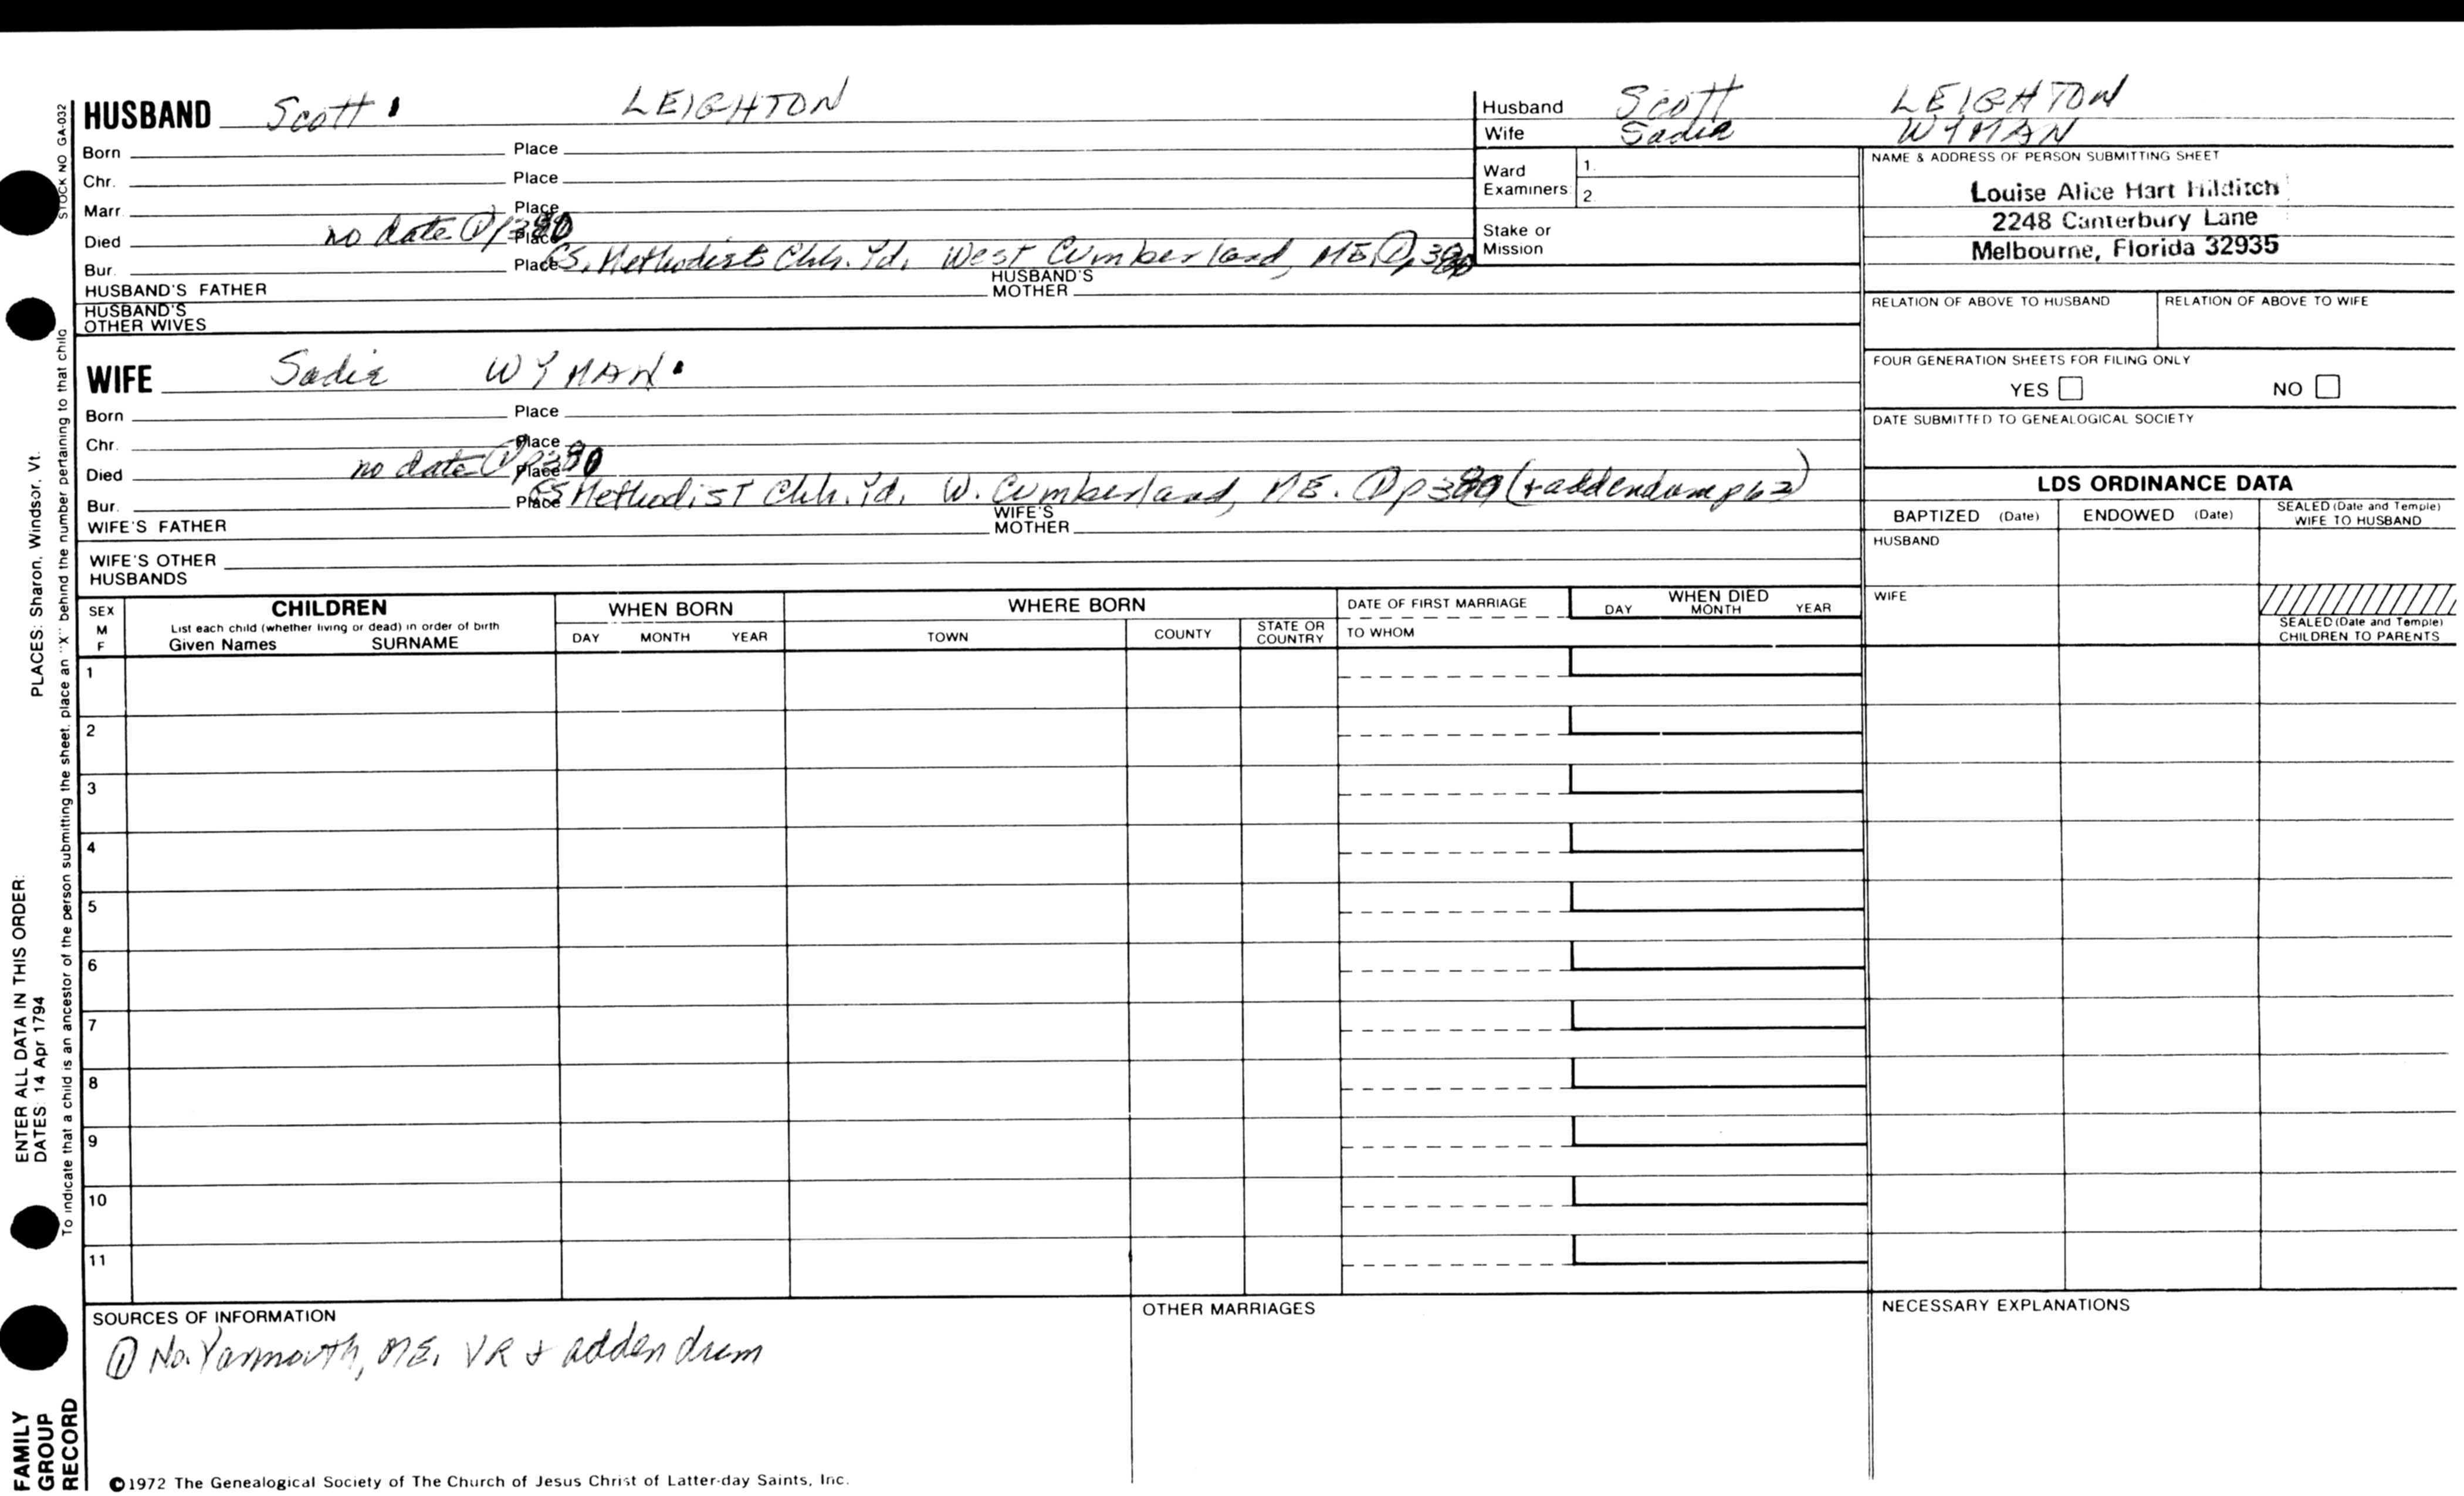 HUSBAND Scott LEIGHTON
Born Place
Chr. Place
Marr. Place
Died no date ① p380 Place
Bur. Place GS, Methodist Chh. Yd, West Cumberland, ME, ① p380
HUSBAND'S FATHER HUSBAND'S MOTHER
HUSBAND'S OTHER WIVES
Husband Scott LEIGHTON
Wife Sadie WYMAN
Ward Examiners 1. 2.
Stake or Mission
NAME & ADDRESS OF PERSON SUBMITTING SHEET
Louise Alice Hart Hilditch
2248 Canterbury Lane
Melbourne, Florida 32935
RELATION OF ABOVE TO HUSBAND RELATION OF ABOVE TO WIFE
FOUR GENERATION SHEETS FOR FILING ONLY
YES NO
DATE SUBMITTED TO GENEALOGICAL SOCIETY
WIFE Sadie WYMAN
Born Place
Chr. Place
Died no date ① p380 Place
Bur. Place GS Methodist Chh. Yd, W. Cumberland, ME. ① p380 (+ addendum p62)
WIFE'S FATHER WIFE'S MOTHER
WIFE'S OTHER HUSBANDS
LDS ORDINANCE DATA
BAPTIZED (Date) ENDOWED (Date) SEALED (Date and Temple) WIFE TO HUSBAND
HUSBAND
WIFE
SEALED (Date and Temple) CHILDREN TO PARENTS
SEX M F
CHILDREN
List each child (whether living or dead) in order of birth
Given Names SURNAME
WHEN BORN
DAY MONTH YEAR
WHERE BORN
TOWN COUNTY STATE OR COUNTRY
DATE OF FIRST MARRIAGE
TO WHOM
WHEN DIED
DAY MONTH YEAR
1
2
3
4
5
6
7
8
9
10
11
SOURCES OF INFORMATION
① No. Yarmouth, ME, VR + addendrum
OTHER MARRIAGES
NECESSARY EXPLANATIONS
©1972 The Genealogical Society of The Church of Jesus Christ of Latter-day Saints, Inc.
STOCK NO GA-032
To indicate that a child is an ancestor of the person submitting the sheet, place an "X" behind the number pertaining to that child
PLACES: Sharon, Windsor, Vt.
ENTER ALL DATA IN THIS ORDER:
DATES: 14 Apr 1794
FAMILY
GROUP
RECORD